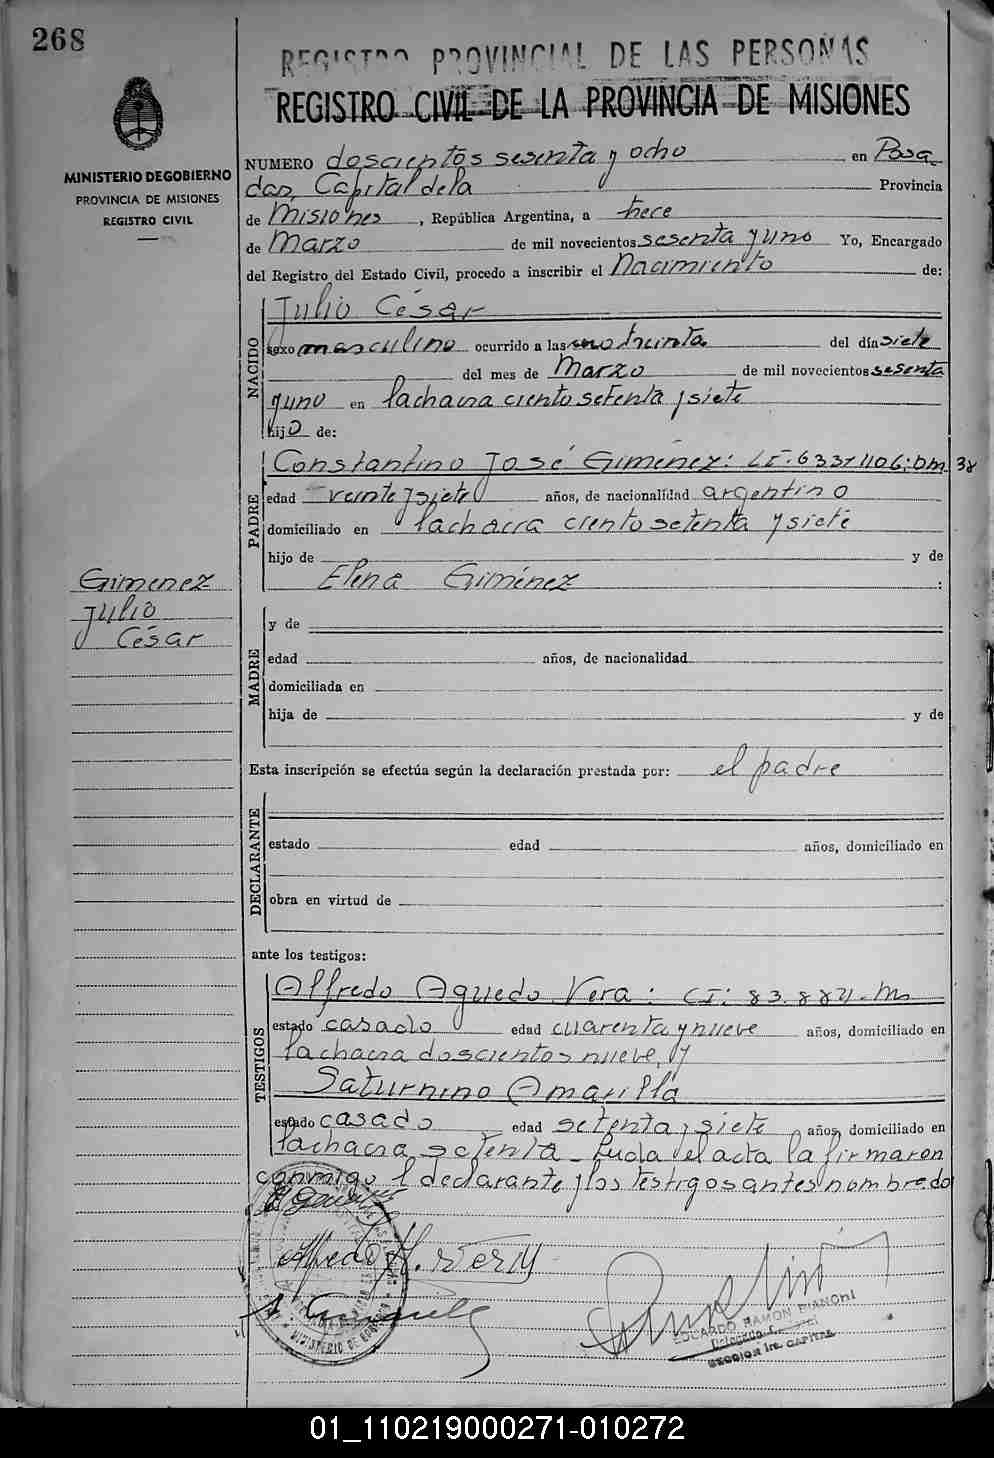 268
REGISTRO PROVINCIAL DE LAS PERSONAS
REGISTRO CIVIL DE LA PROVINCIA DE MISIONES
MINISTERIO DE GOBIERNO
PROVINCIA DE MISIONES
REGISTRO CIVIL
NUMERO doscientos sesenta y ocho en Posa
das, Capital de la Provincia
de Misiones, República Argentina, a trece
de Marzo de mil novecientos sesenta y uno Yo, Encargado
del Registro del Estado Civil, procedo a inscribir el Nacimiento de:
NACIDO
Julio César
sexo masculino ocurrido a las uno treinta del día siete
del mes de Marzo de mil novecientos sesenta
y uno en la chacra ciento setenta y siete
hijo de:
PADRE
Constantino José Giménez: DM. 38
edad veinte y siete años, de nacionalidad argentino
domiciliado en la chacra ciento setenta y siete
hijo de y de
Elena Giménez :
Gimenez
Julio
César
MADRE
y de
edad años, de nacionalidad
domiciliada en
hija de y de
Esta inscripción se efectúa según la declaración prestada por: el padre
DECLARANTE
estado edad años, domiciliado en
obra en virtud de
ante los testigos:
TESTIGOS
Alfredo Aguedo Vera: CI: 83.884.
estado casado edad cuarenta y nueve años, domiciliado en
la chacra doscientos nueve, y
Saturnino Amarilla
estado casado edad setenta y siete años, domiciliado en
la chacra setenta - Leída el acta la firmaron
conmigo el declarante y los testigos antes nombrado
Alfredo A. Vera
EDUARDO RAMON BIANCHI
Delegado
SECCION 1ra. CAPITAL
MINISTERIO DE GOBIERNO
01_110219000271-010272